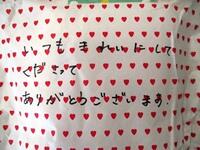 いつもきれいにして
くださって
ありがとうございます!